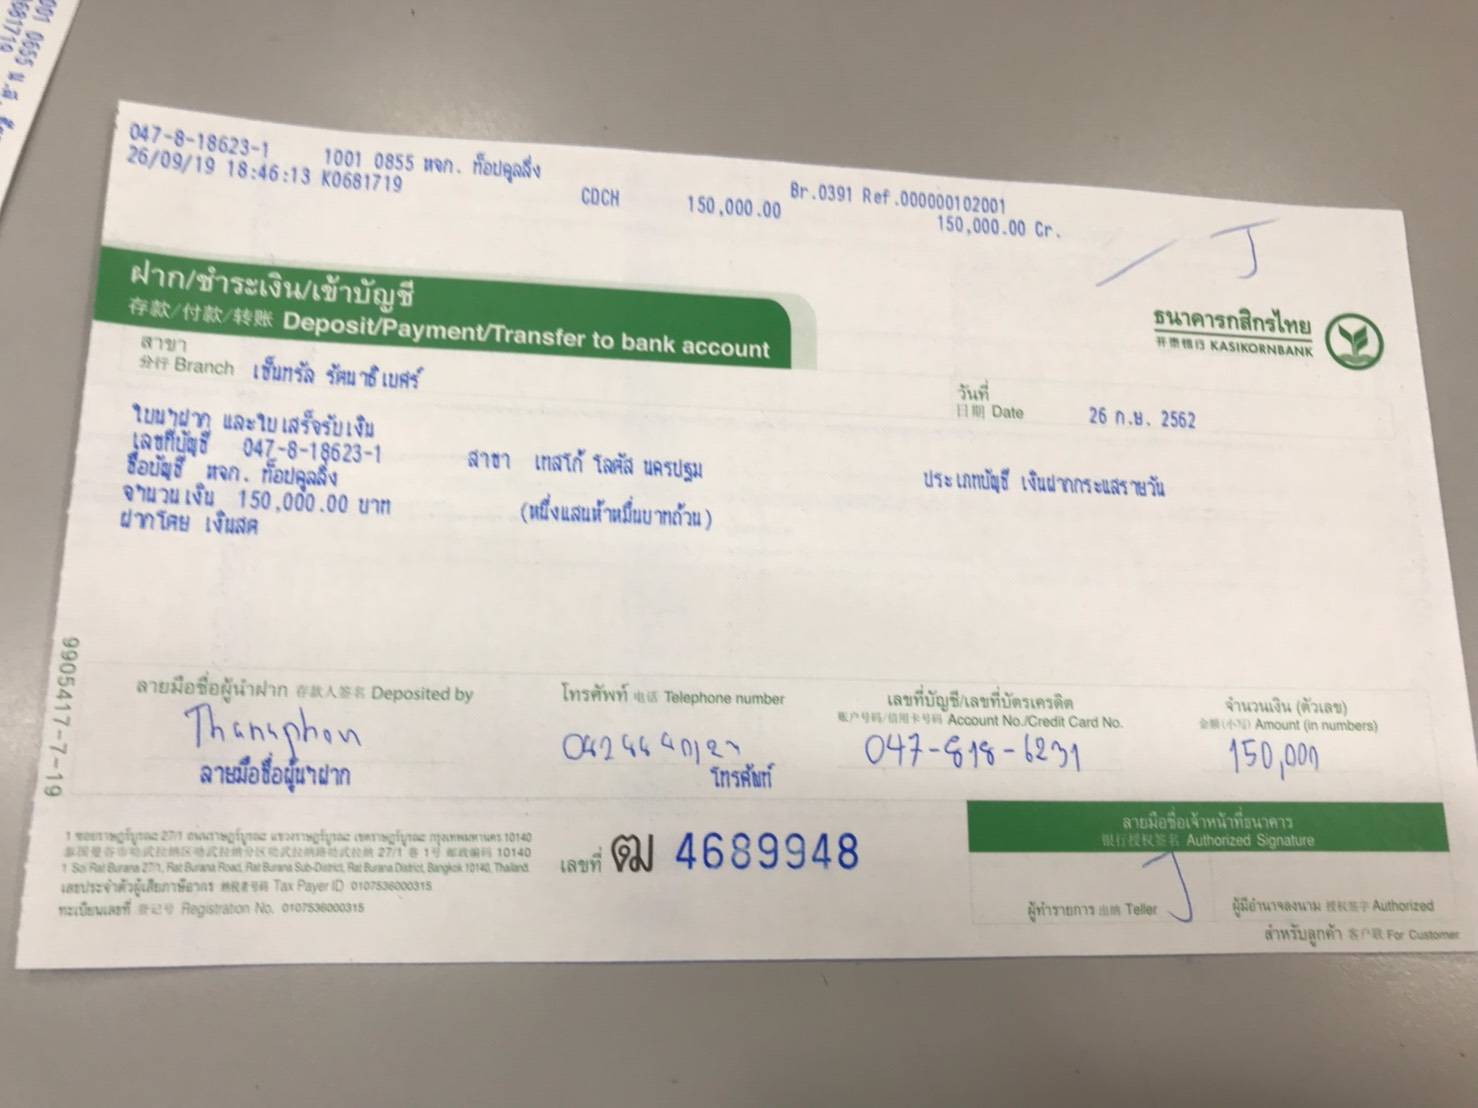 047-8-18623-1 1001 0855 หจก. ท็อปคูลลิ่ง Br.0391 Ref.000000102001
26/09/19 18:46:13 K0681719 CDCH 150,000.00 150,000.00 Cr.
ฝาก/ชำระเงิน/เข้าบัญชี
存款/付款/转账 Deposit/Payment/Transfer to bank account
ธนาคารกสิกรไทย
开泰银行 KASIKORNBANK
สาขา
分行 Branch เซ็นทรัล รัตนาธิเบศร์
วันที่
日期 Date 26 ก.ย. 2562
ใบนำฝาก และใบเสร็จรับเงิน
เลขที่บัญชี 047-8-18623-1 สาขา เทสโก้ โลตัส นครปฐม ประเภทบัญชี เงินฝากกระแสรายวัน
ชื่อบัญชี หจก. ท็อปคูลลิ่ง
จำนวนเงิน 150,000.00 บาท (หนึ่งแสนห้าหมื่นบาทถ้วน)
ฝากโดย เงินสด
ลายมือชื่อผู้นำฝาก 存款人签名 Deposited by
Thanaphon
ลายมือชื่อผู้นำฝาก
โทรศัพท์ 电话 Telephone number
โทรศัพท์
เลขที่บัญชี/เลขที่บัตรเครดิต
账户号码/信用卡号码 Account No./Credit Card No.
047-818-6231
จำนวนเงิน (ตัวเลข)
金额(小写) Amount (in numbers)
150,000
9905417-7-19
1 ซอยราษฎร์บูรณะ 27/1 ถนนราษฎร์บูรณะ แขวงราษฎร์บูรณะ เขตราษฎร์บูรณะ กรุงเทพมหานคร 10140
1 Soi Rat Burana 27/1, Rat Burana Road, Rat Burana Sub-District, Rat Burana District, Bangkok 10140, Thailand.
เลขประจำตัวผู้เสียภาษีอากร 纳税者号码 Tax Payer ID 0107536000315
ทะเบียนเลขที่ 登记号 Registration No. 0107536000315
เลขที่ ฒฌ 4689948
ลายมือชื่อเจ้าหน้าที่ธนาคาร
银行授权签名 Authorized Signature
ผู้ทำรายการ 出纳 Teller
ผู้มีอำนาจลงนาม 授权签字 Authorized
สำหรับลูกค้า 客户联 For Customer